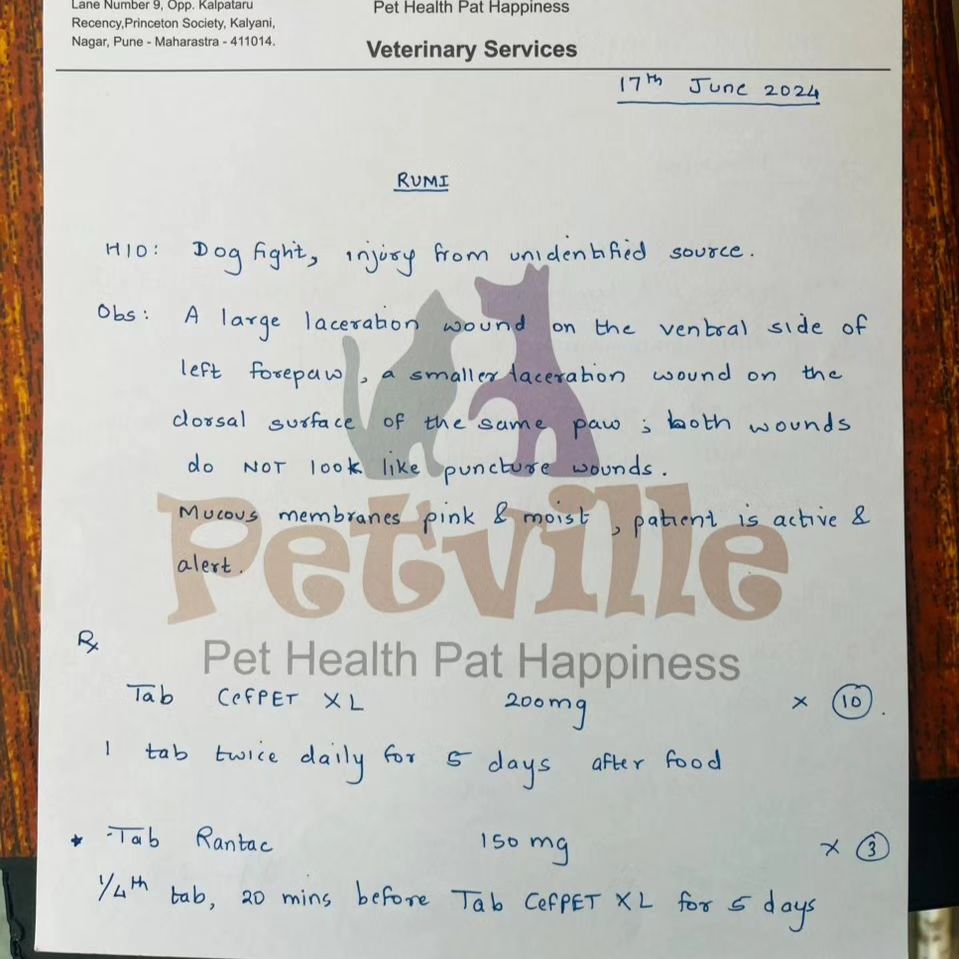 Lane Number 9, Opp. Kalpataru
Recency,Princeton Society, Kalyani,
Nagar, Pune - Maharastra - 411014.
Pet Health Pat Happiness
Veterinary Services
17th June 2024
RUMI
H/O: Dog fight, injury from unidentified source.
Obs: A large laceration wound on the ventral side of
left forepaw, a smaller laceration wound on the
dorsal surface of the same paw; both wounds
do NOT look like puncture wounds.
Mucous membranes pink & moist, patient is active &
alert.
Petville
Pet Health Pat Happiness
Rx
Tab CefPET XL 200mg x 10.
1 tab twice daily for 5 days after food
* Tab Rantac 150 mg x 3
1/4th tab, 20 mins before Tab CefPET XL for 5 days